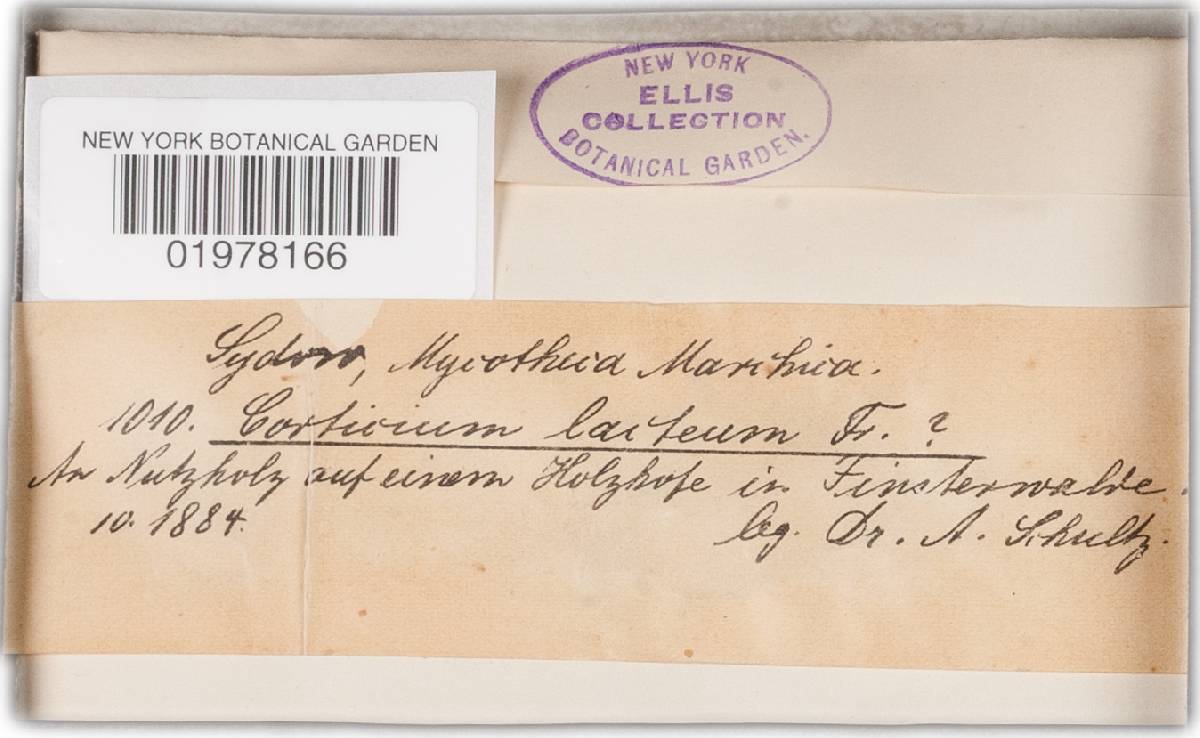 NEW YORK
ELLIS
COLLECTION
BOTANICAL GARDEN.
NEW YORK BOTANICAL GARDEN
01978166
Sydow, Mycotheca Marchica.
1010. Corticium lacteum Fr. ?
An Nutzholz auf einem Holzhofe in Finsterwalde.
10. 1884. leg. Dr. A. Schultz.